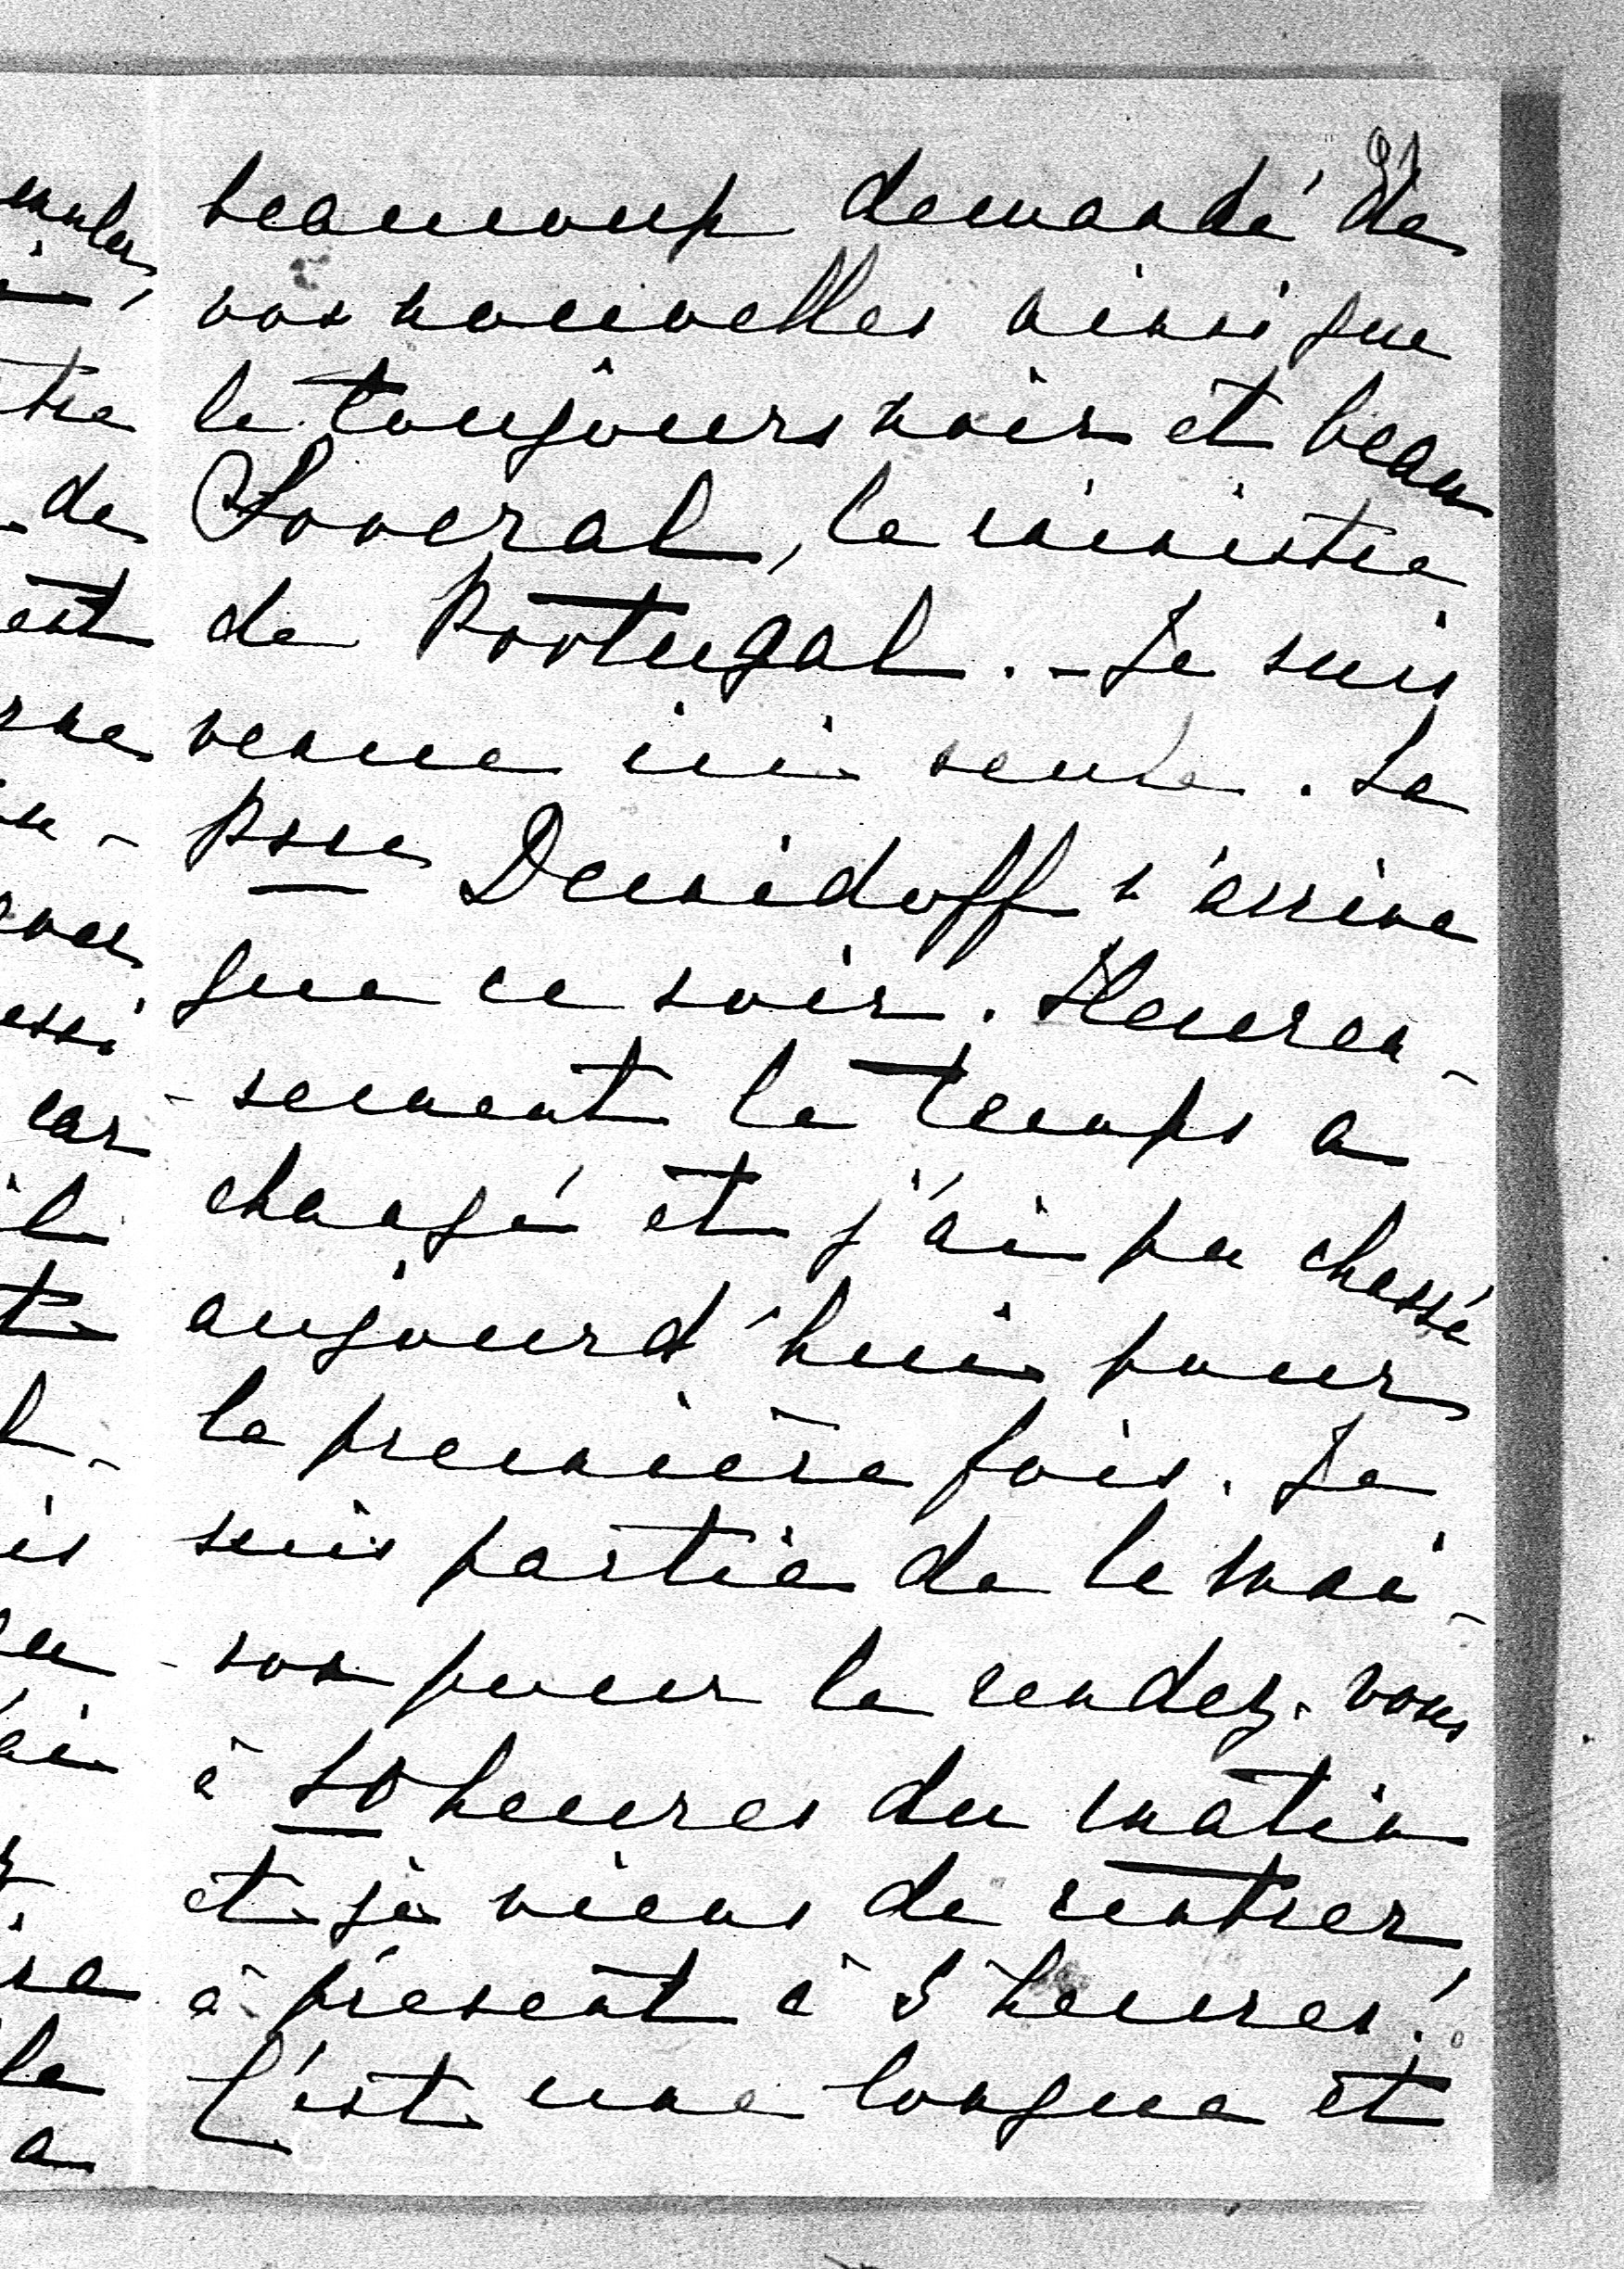 beaucoup demandé de
vos nouvelles ainsi que
le toujours noir et beau
Soveral, le ministre
de Portugal. - Je suis
venue ici seule. La
Psse Demidoff n'arrive
que ce soir. Heureu-
-sement le temps a
changé et j'ai pu chassé
aujourd'hui pour
la première fois. Je
suis partie de la mai-
-son pour le rendez-vous
à 10 heures du matin
et je viens de rentrer
à présent à 5 heures!
C'est une longue et